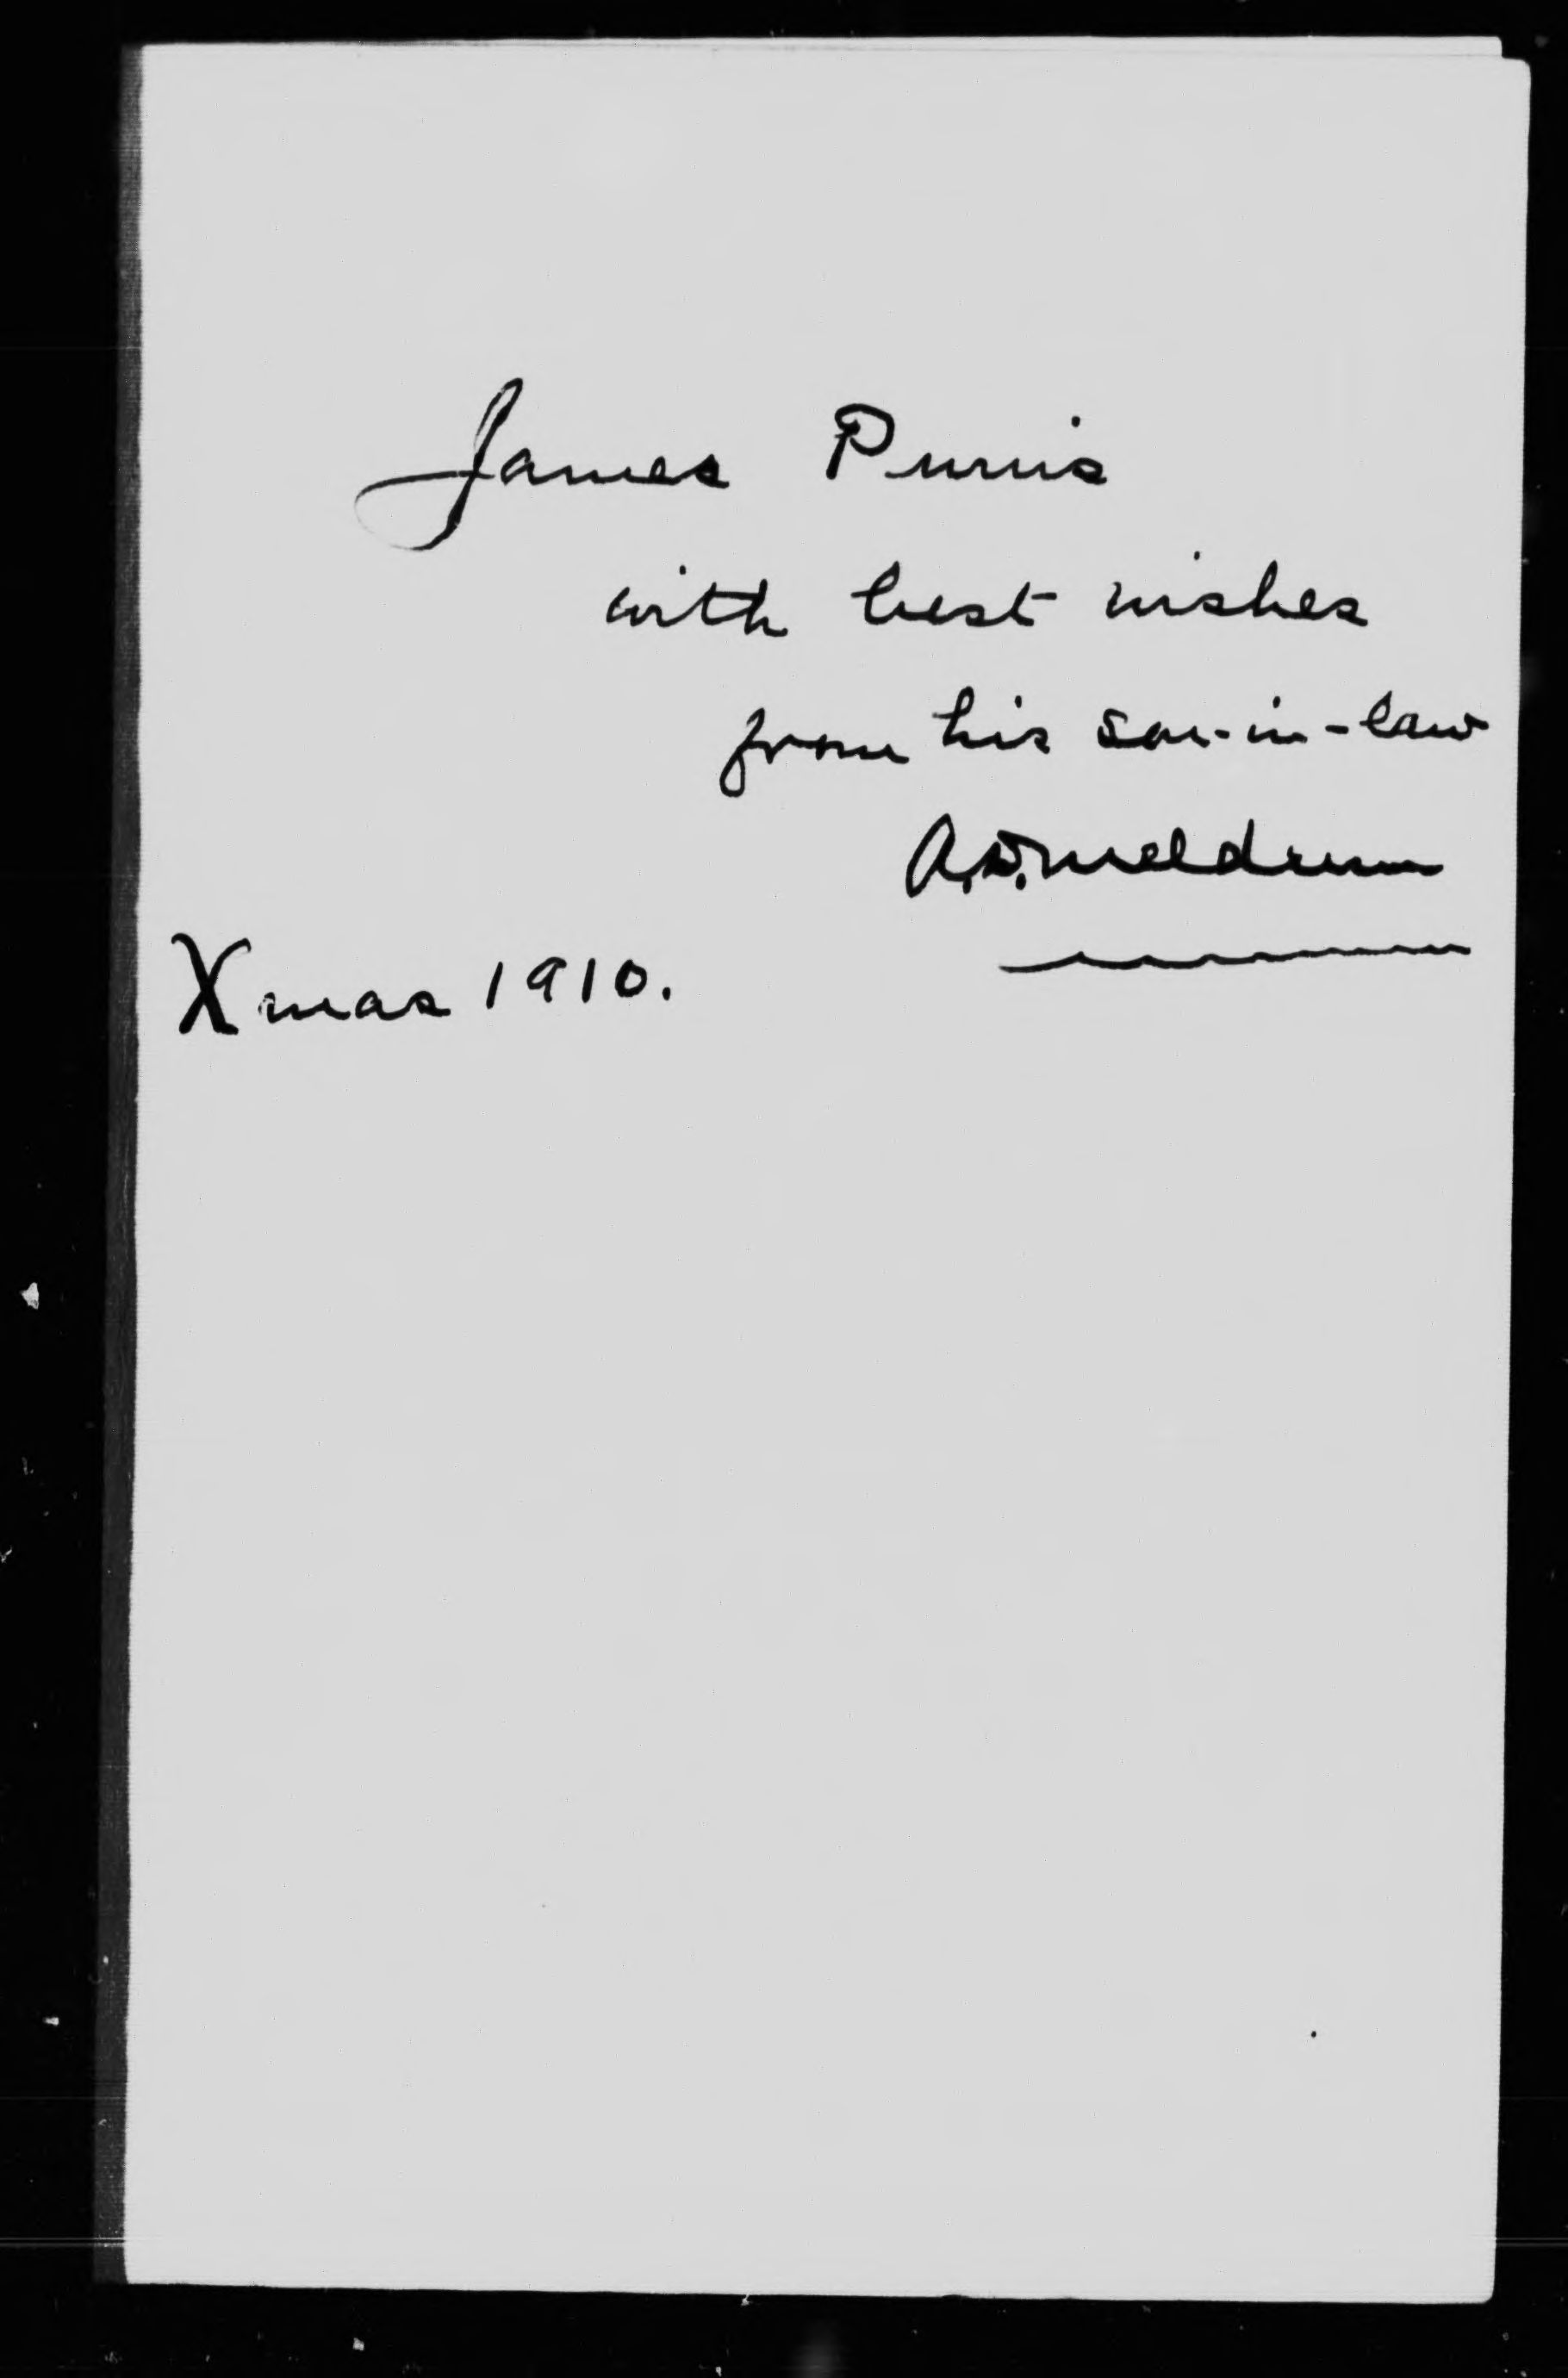 James Purvis
with best wishes
from his son-in-law
A.D. Meldrum
Xmas 1910.